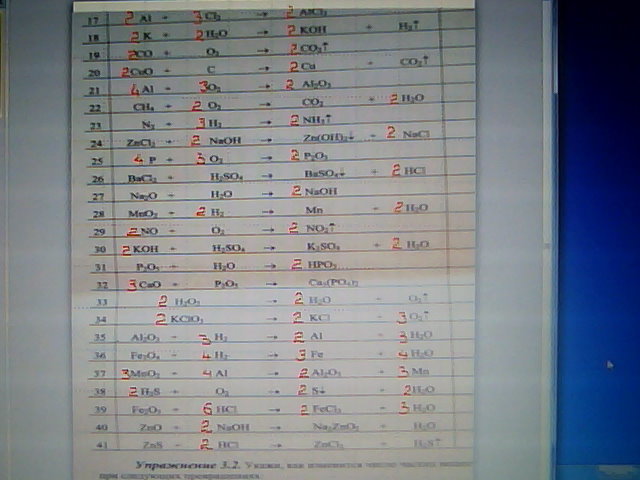 17 2 Al + 3 Cl₂ → 2 AlCl₃
18 2 K + 2 H₂O → 2 KOH + H₂↑
19 2 CO + O₂ → 2 CO₂↑
20 2 CuO + C → 2 Cu + CO₂↑
21 4 Al + 3 O₂ → 2 Al₂O₃
22 CH₄ + 2 O₂ → CO₂ + 2 H₂O
23 N₂ + 3 H₂ → 2 NH₃↑
24 ZnCl₂ + 2 NaOH → Zn(OH)₂↓ + 2 NaCl
25 4 P + 3 O₂ → 2 P₂O₃
26 BaCl₂ + H₂SO₄ → BaSO₄↓ + 2 HCl
27 Na₂O + H₂O → 2 NaOH
28 MnO₂ + 2 H₂ → Mn + 2 H₂O
29 2 NO + O₂ → 2 NO₂↑
30 2 KOH + H₂SO₄ → K₂SO₄ + 2 H₂O
31 P₂O₅ + H₂O → 2 HPO₃
32 3 CaO + P₂O₅ → Ca₃(PO₄)₂
33 2 H₂O₂ → 2 H₂O + O₂↑
34 2 KClO₃ → 2 KCl + 3 O₂↑
35 Al₂O₃ + 3 H₂ → 2 Al + 3 H₂O
36 Fe₃O₄ + 4 H₂ → 3 Fe + 4 H₂O
37 3 MnO₂ + 4 Al → 2 Al₂O₃ + 3 Mn
38 2 H₂S + O₂ → 2 S↓ + 2 H₂O
39 Fe₂O₃ + 6 HCl → 2 FeCl₃ + 3 H₂O
40 ZnO + 2 NaOH → Na₂ZnO₂ + H₂O
41 ZnS + 2 HCl → ZnCl₂ + H₂S↑
Упражнение 3.2. Укажи, как изменится число частиц
при следующих превращениях